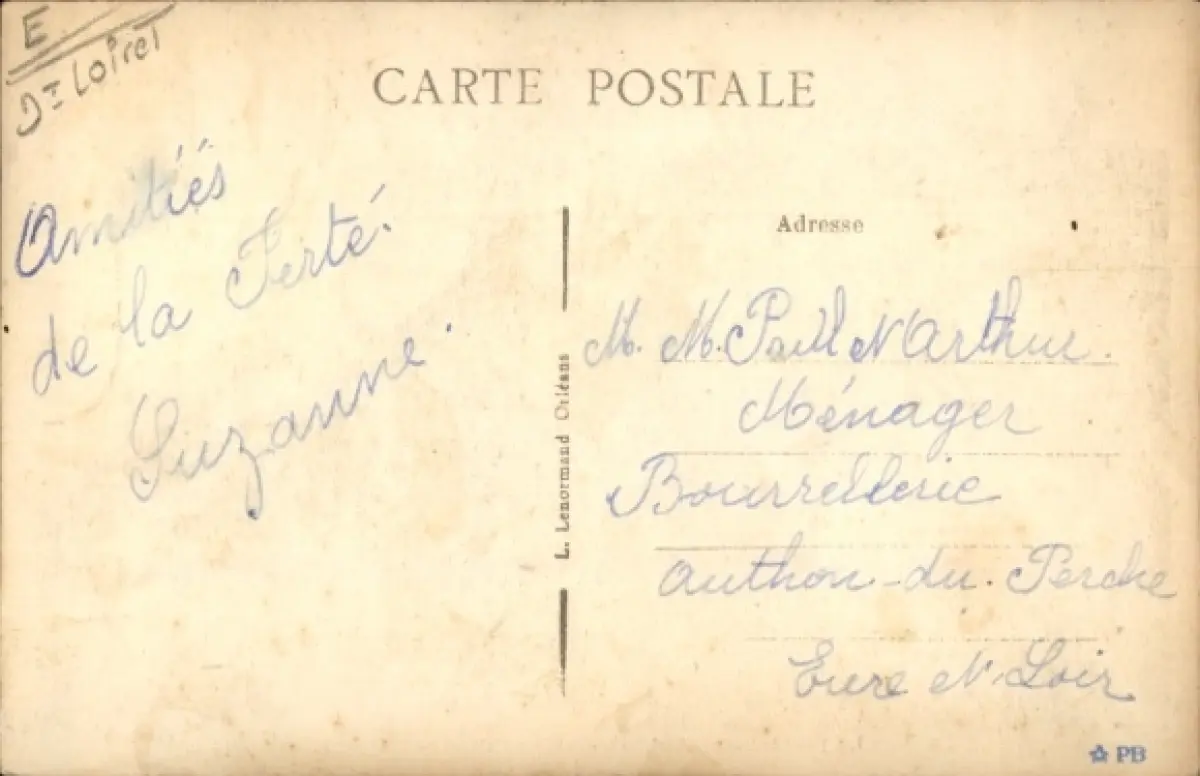 E
Dt Loiret
CARTE POSTALE
Amitiés
de la Ferté.
Suzanne.
L. Lenormand Orléans
Adresse
M. M. Paul et Arthur.
Ménager
Bourrellerie
Authon-du-Perche
Eure et Loir
PB